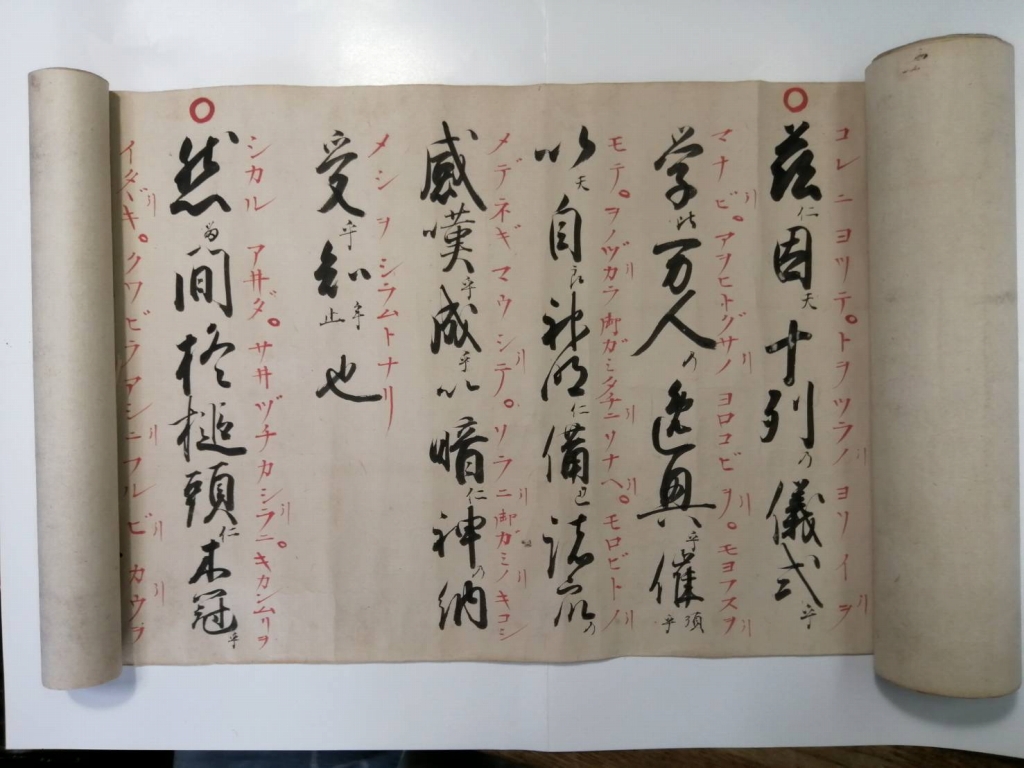 コレニヨツテ。トヲツラノヨソイヲ
茲仁因天十列の儀式乎
マナビ。アヲヒトグサノヨロコビヲ。モヨフスヲ
学比万人の逸興乎催須乎
モテ。ヲノヅカラ御ガミダチニソナヘ。モロビトノ
以天自良神明仁備己諸衆の
メデネギマウシテ。ソラニ御ガミノキコシ
感嘆乎成乎以暗仁神の納
メシヲシラムトナリ
受乎知牟止也
シカルアヰダ。サヰヅチカシラニキカンムリヲ
然る間柊槌頭仁木冠乎
イダヾキ。クワビラアシニフルビカウブ